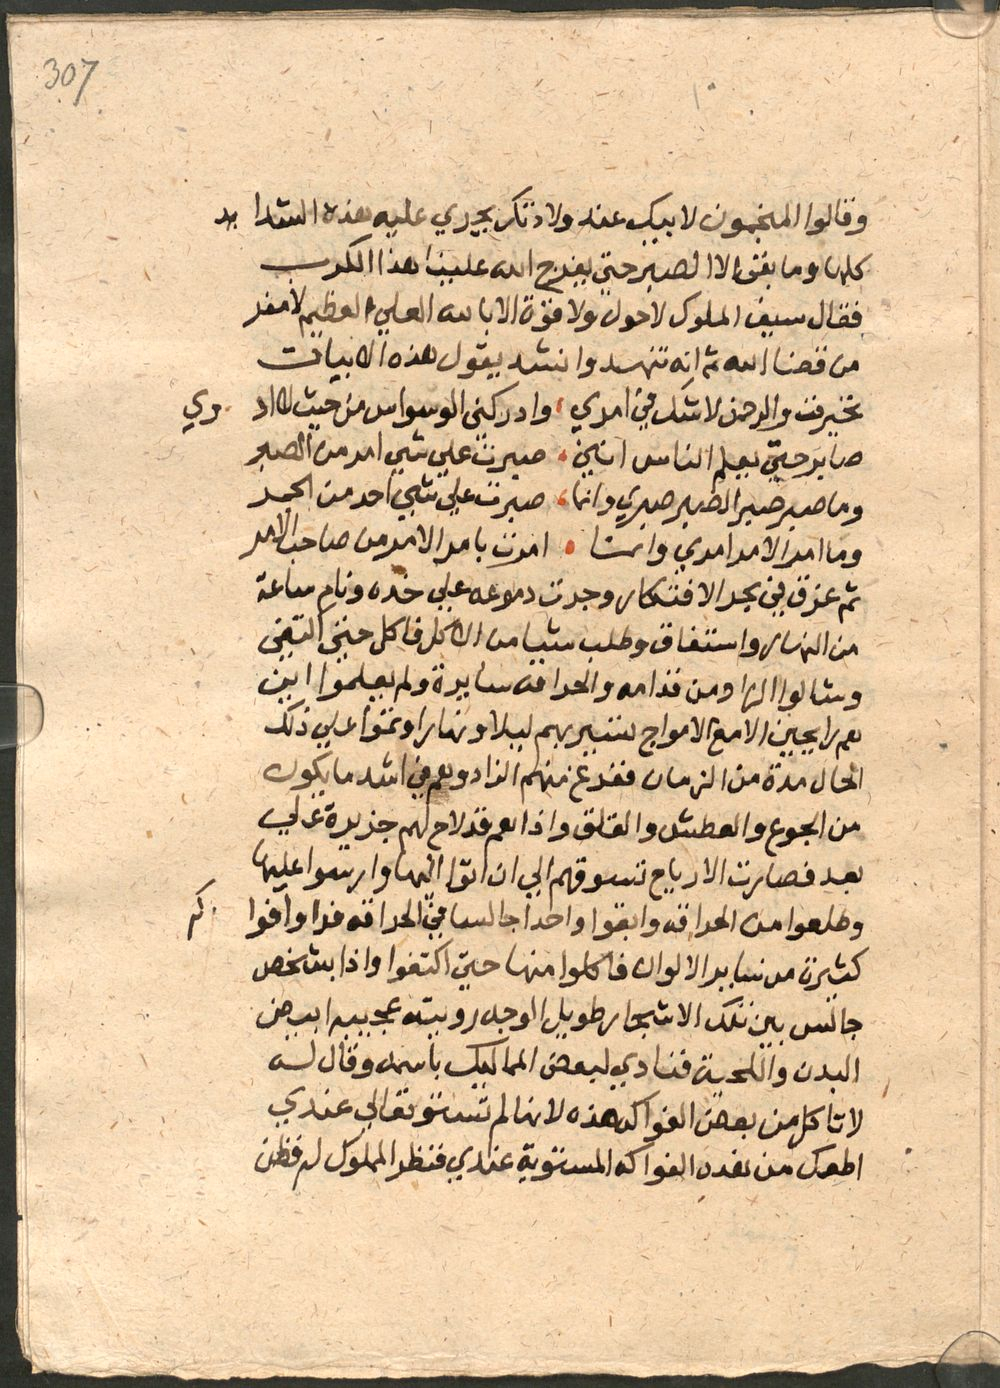 307
وقالوا المنجمون لابيك عنه ولا ذكر يجري عليه هذه الشدايد
كلها وما بقى الا الصبر حتي يفرج الله علينا هذا الكرب
فقال سيف الملوك لاحول ولا قوة الا بالله العلي العظيم لا مفر
من قضا الله ثم انه تنهد وانشد يقول هذه الابيات
تخيرت والرحمن لاشك في امري وادركني الوسواس من حيث لا ادري
صابر حتي يعلم الناس انني صبرت علي شي امر من الصبر
وما صبر صبر الصبر صبري وانما صبرت علي شي احر من الجمر
وما امر الامر امري وانما امرت بامر الامر من صاحب الامر
ثم غرق في بحر الافتكار وجرت دموعه علي خده ونام ساعة
من النهار واستفاق وطلب شيا من الاكل فاكل حتي اكتفي
وشالوا الزاد من قدامه والحراقه سايرة ولم يعلموا اين
هم رايحين الامع الامواج تسير بهم ليلا ونهارا وتموا علي ذلك
الحال مدة من الزمان ففرغ منهم الزاد وهم في اشد ما يكون
من الجوع والعطش والقلق واذا هم قد لاح لهم جزيرة علي
بعد فصارت الارياح تسوقهم الي ان اتوا اليها وارسوا عليها
وطلعوا من الحراقه وابقوا واحدا جالسا في الحراقه فراوا فواكه
كثيرة من ساير الالوان فاكلوا منها حتي اكتفوا واذا بشخص
جالس بين تلك الاشجار طويل الوجه رويته عجيبه ابيض
البدن واللحية فنادي لبعض المماليك باسمه وقال له
لا تاكل من بعض الفواكه هذه لانها لم تستو تعالي عندي
اطعمك من هذه الفواكه المستوية عندي فنظر المملوك له فظن